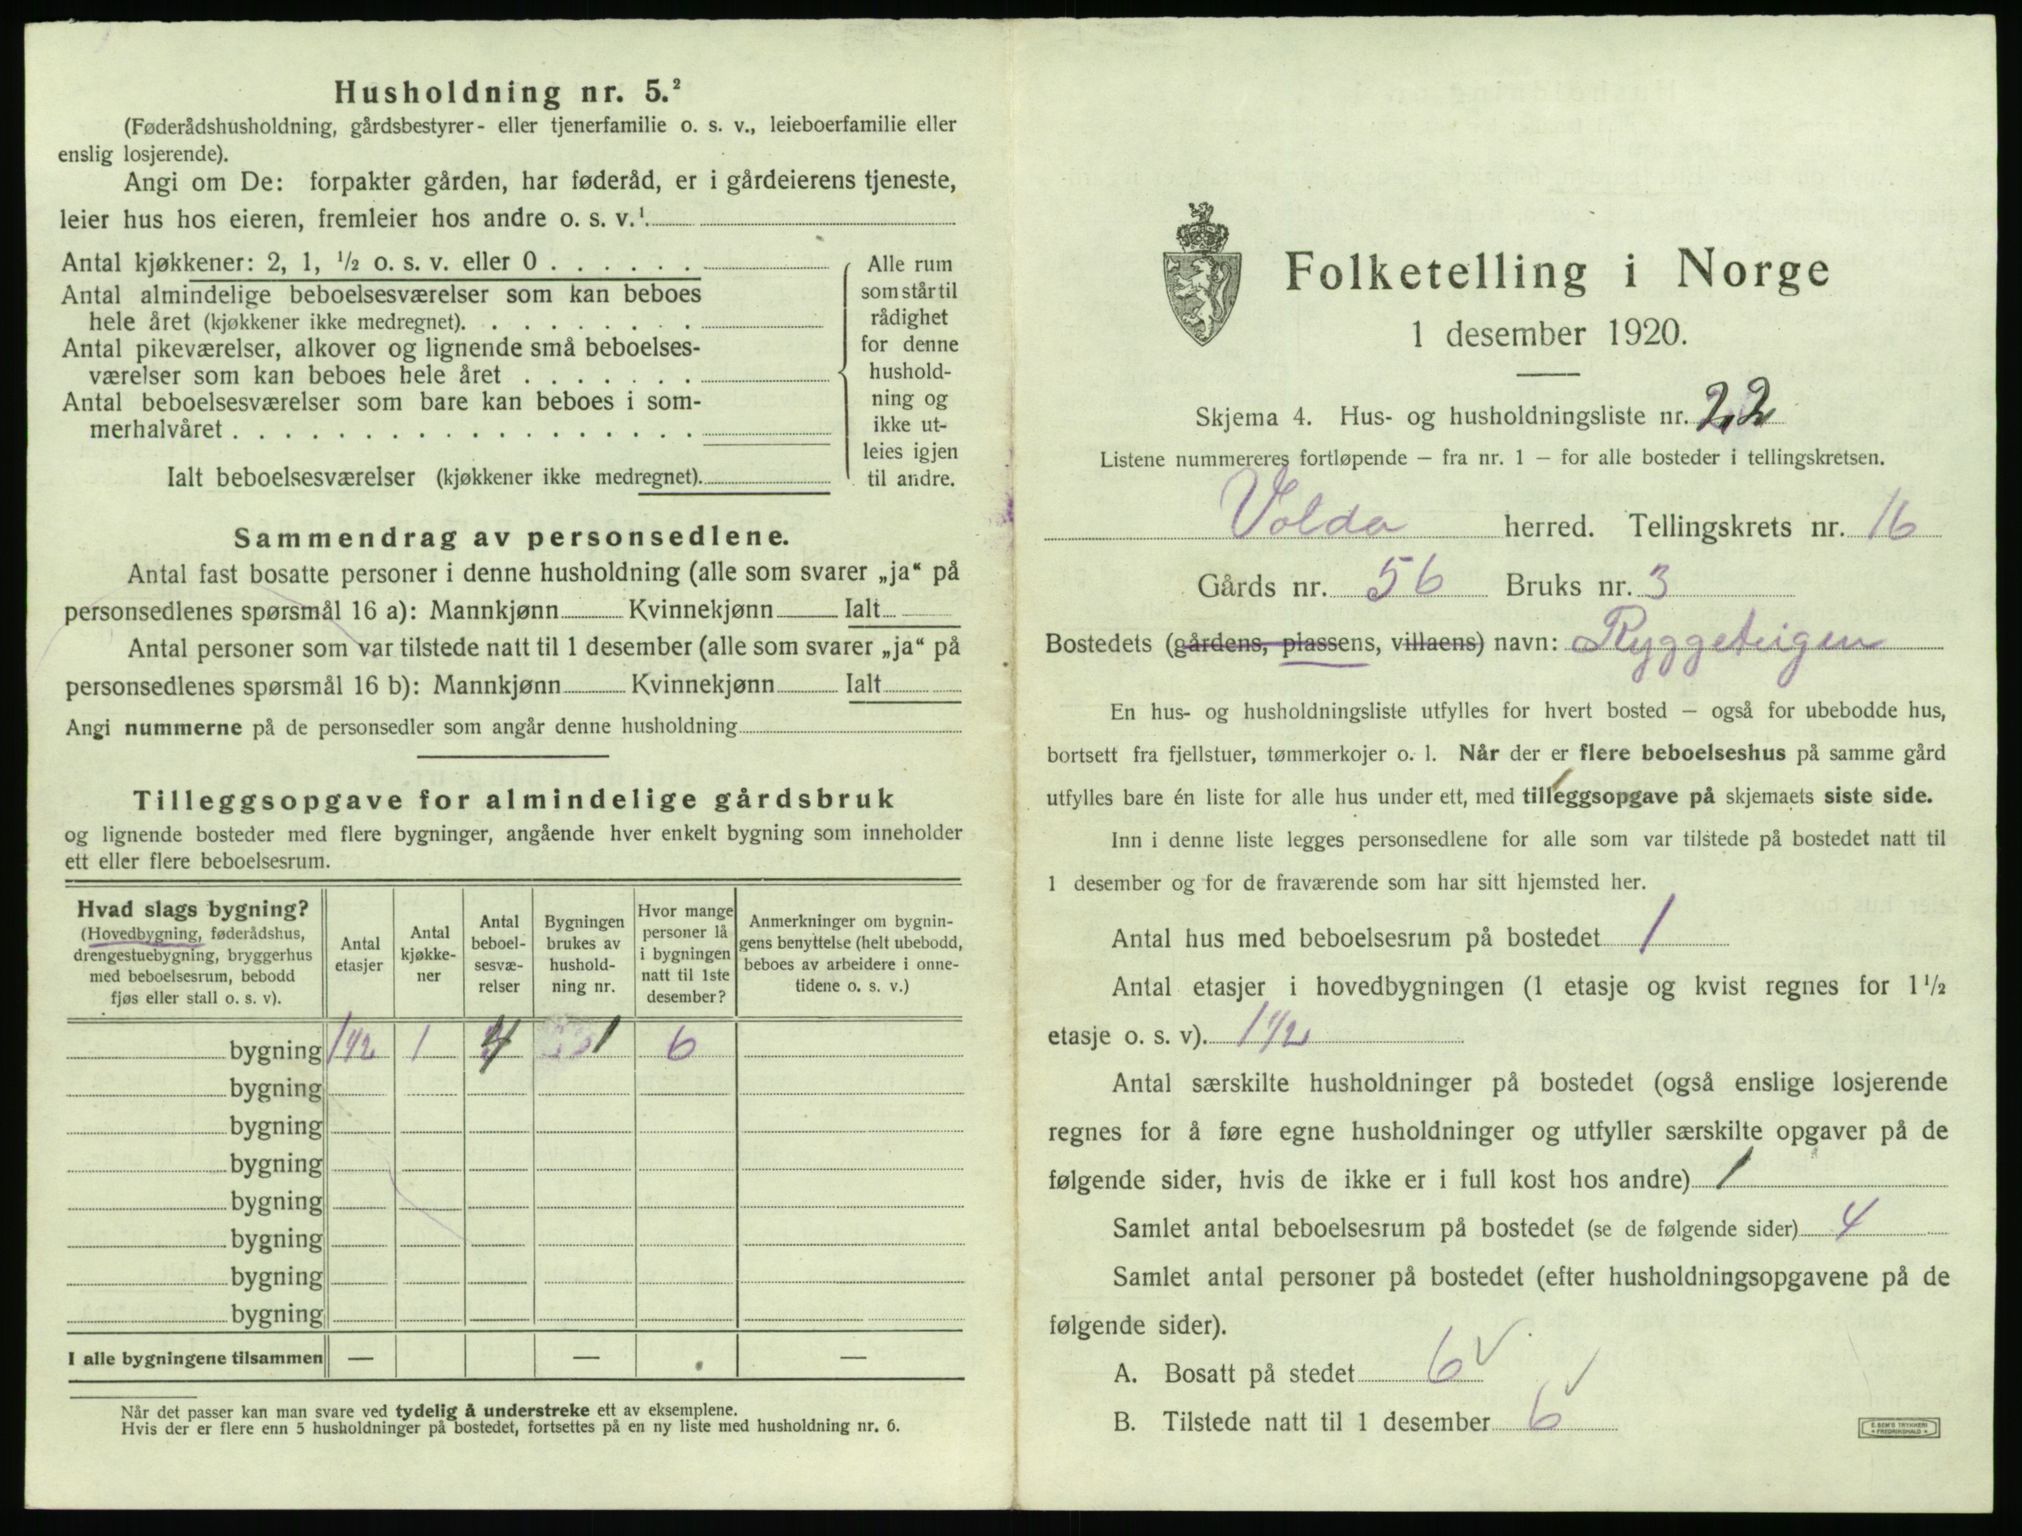 Husholdning nr. 5.²
(Føderådshusholdning, gårdsbestyrer- eller tjenerfamilie o. s. v., leieboerfamilie eller
enslig losjerende).
Angi om De: forpakter gården, har føderåd, er i gårdeierens tjeneste,
leier hus hos eieren, fremleier hos andre o. s. v.¹
Antal kjøkkener: 2, 1, ½ o. s. v. eller 0 . . . . . .
Antal almindelige beboelsesværelser som kan beboes
hele året (kjøkkener ikke medregnet). . . . . . . . .
Antal pikeværelser, alkover og lignende små beboelses-
værelser som kan beboes hele året . . . . . . .
Antal beboelsesværelser som bare kan beboes i som-
merhalvåret . . . . . . . . . . . . . . . . . .
Ialt beboelsesværelser (kjøkkener ikke medregnet).
Alle rum
som står til
rådighet
for denne
hushold-
ning og
ikke ut-
leies igjen
til andre.
Sammendrag av personsedlene.
Antal fast bosatte personer i denne husholdning (alle som svarer „ja“ på
personsedlenes spørsmål 16 a): Mannkjønn Kvinnekjønn Ialt
Antal personer som var tilstede natt til 1 desember (alle som svarer „ja“ på
personsedlenes spørsmål 16 b): Mannkjønn Kvinnekjønn Ialt
Angi nummerne på de personsedler som angår denne husholdning
Tilleggsopgave for almindelige gårdsbruk
og lignende bosteder med flere bygninger, angående hver enkelt bygning som inneholder
ett eller flere beboelsesrum.
Hvad slags bygning?
(Hovedbygning, føderådshus,
drengestuebygning, bryggerhus
med beboelsesrum, bebodd
fjøs eller stall o. s. v).
Antal
etasjer
Antal
kjøkke-
ner
Antal
beboel-
sesvæ-
relser
Bygningen
brukes av
hushold-
ning nr.
Hvor mange
personer lå
i bygningen
natt til 1ste
desember?
Anmerkninger om bygnin-
gens benyttelse (helt ubebodd,
beboes av arbeidere i onne-
tidene o. s. v.)
bygning 1 1/2 1 4 1 6
bygning
bygning
bygning
bygning
bygning
bygning
bygning
I alle bygningene tilsammen — — —
Når det passer kan man svare ved tydelig å understreke ett av eksemplene.
Hvis der er flere enn 5 husholdninger på bostedet, fortsettes på en ny liste med husholdning nr. 6.
Folketelling i Norge
1 desember 1920.
Skjema 4. Hus- og husholdningsliste nr. 22
Listene nummereres fortløpende — fra nr. 1 — for alle bosteder i tellingskretsen.
Volda herred. Tellingskrets nr. 16
Gårds nr. 56 Bruks nr. 3
Bostedets (gårdens, plassens, villaens) navn: Ryggeteigen
En hus- og husholdningsliste utfylles for hvert bosted — også for ubebodde hus,
bortsett fra fjellstuer, tømmerkojer o. l. Når der er flere beboelseshus på samme gård
utfylles bare én liste for alle hus under ett, med tilleggsopgave på skjemaets siste side.
Inn i denne liste legges personsedlene for alle som var tilstede på bostedet natt til
1 desember og for de fraværende som har sitt hjemsted her.
Antal hus med beboelsesrum på bostedet 1
Antal etasjer i hovedbygningen (1 etasje og kvist regnes for 1½
etasje o. s. v). 1 1/2
Antal særskilte husholdninger på bostedet (også enslige losjerende
regnes for å føre egne husholdninger og utfyller særskilte opgaver på de
følgende sider, hvis de ikke er i full kost hos andre) 1
Samlet antal beboelsesrum på bostedet (se de følgende sider) 4
Samlet antal personer på bostedet (efter husholdningsopgavene på de
følgende sider).
A. Bosatt på stedet 6 ✓
B. Tilstede natt til 1 desember 6 ✓
E. SEM'S TRYKKERI
FREDRIKSHALD